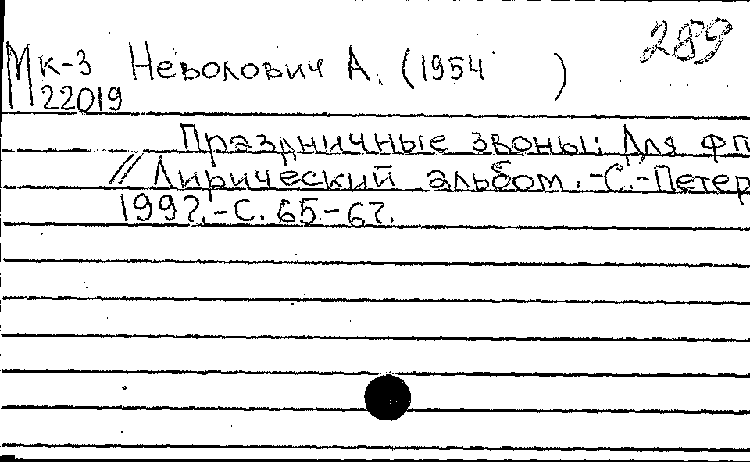 289
Мк-3 Неволович А. (1954 )
22019
Праздничные звоны: Для фп
// Лирический альбом.-С.-Петер
1997.-С. 65-67.